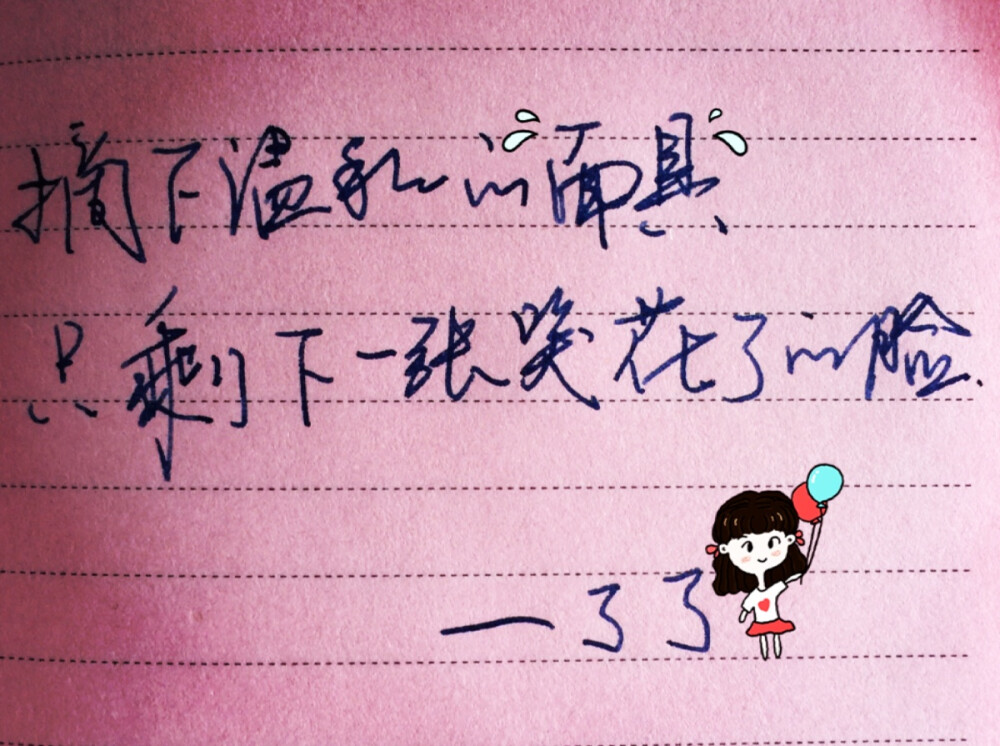 摘下温和的面具
只剩下一张笑花了的脸.
—了了